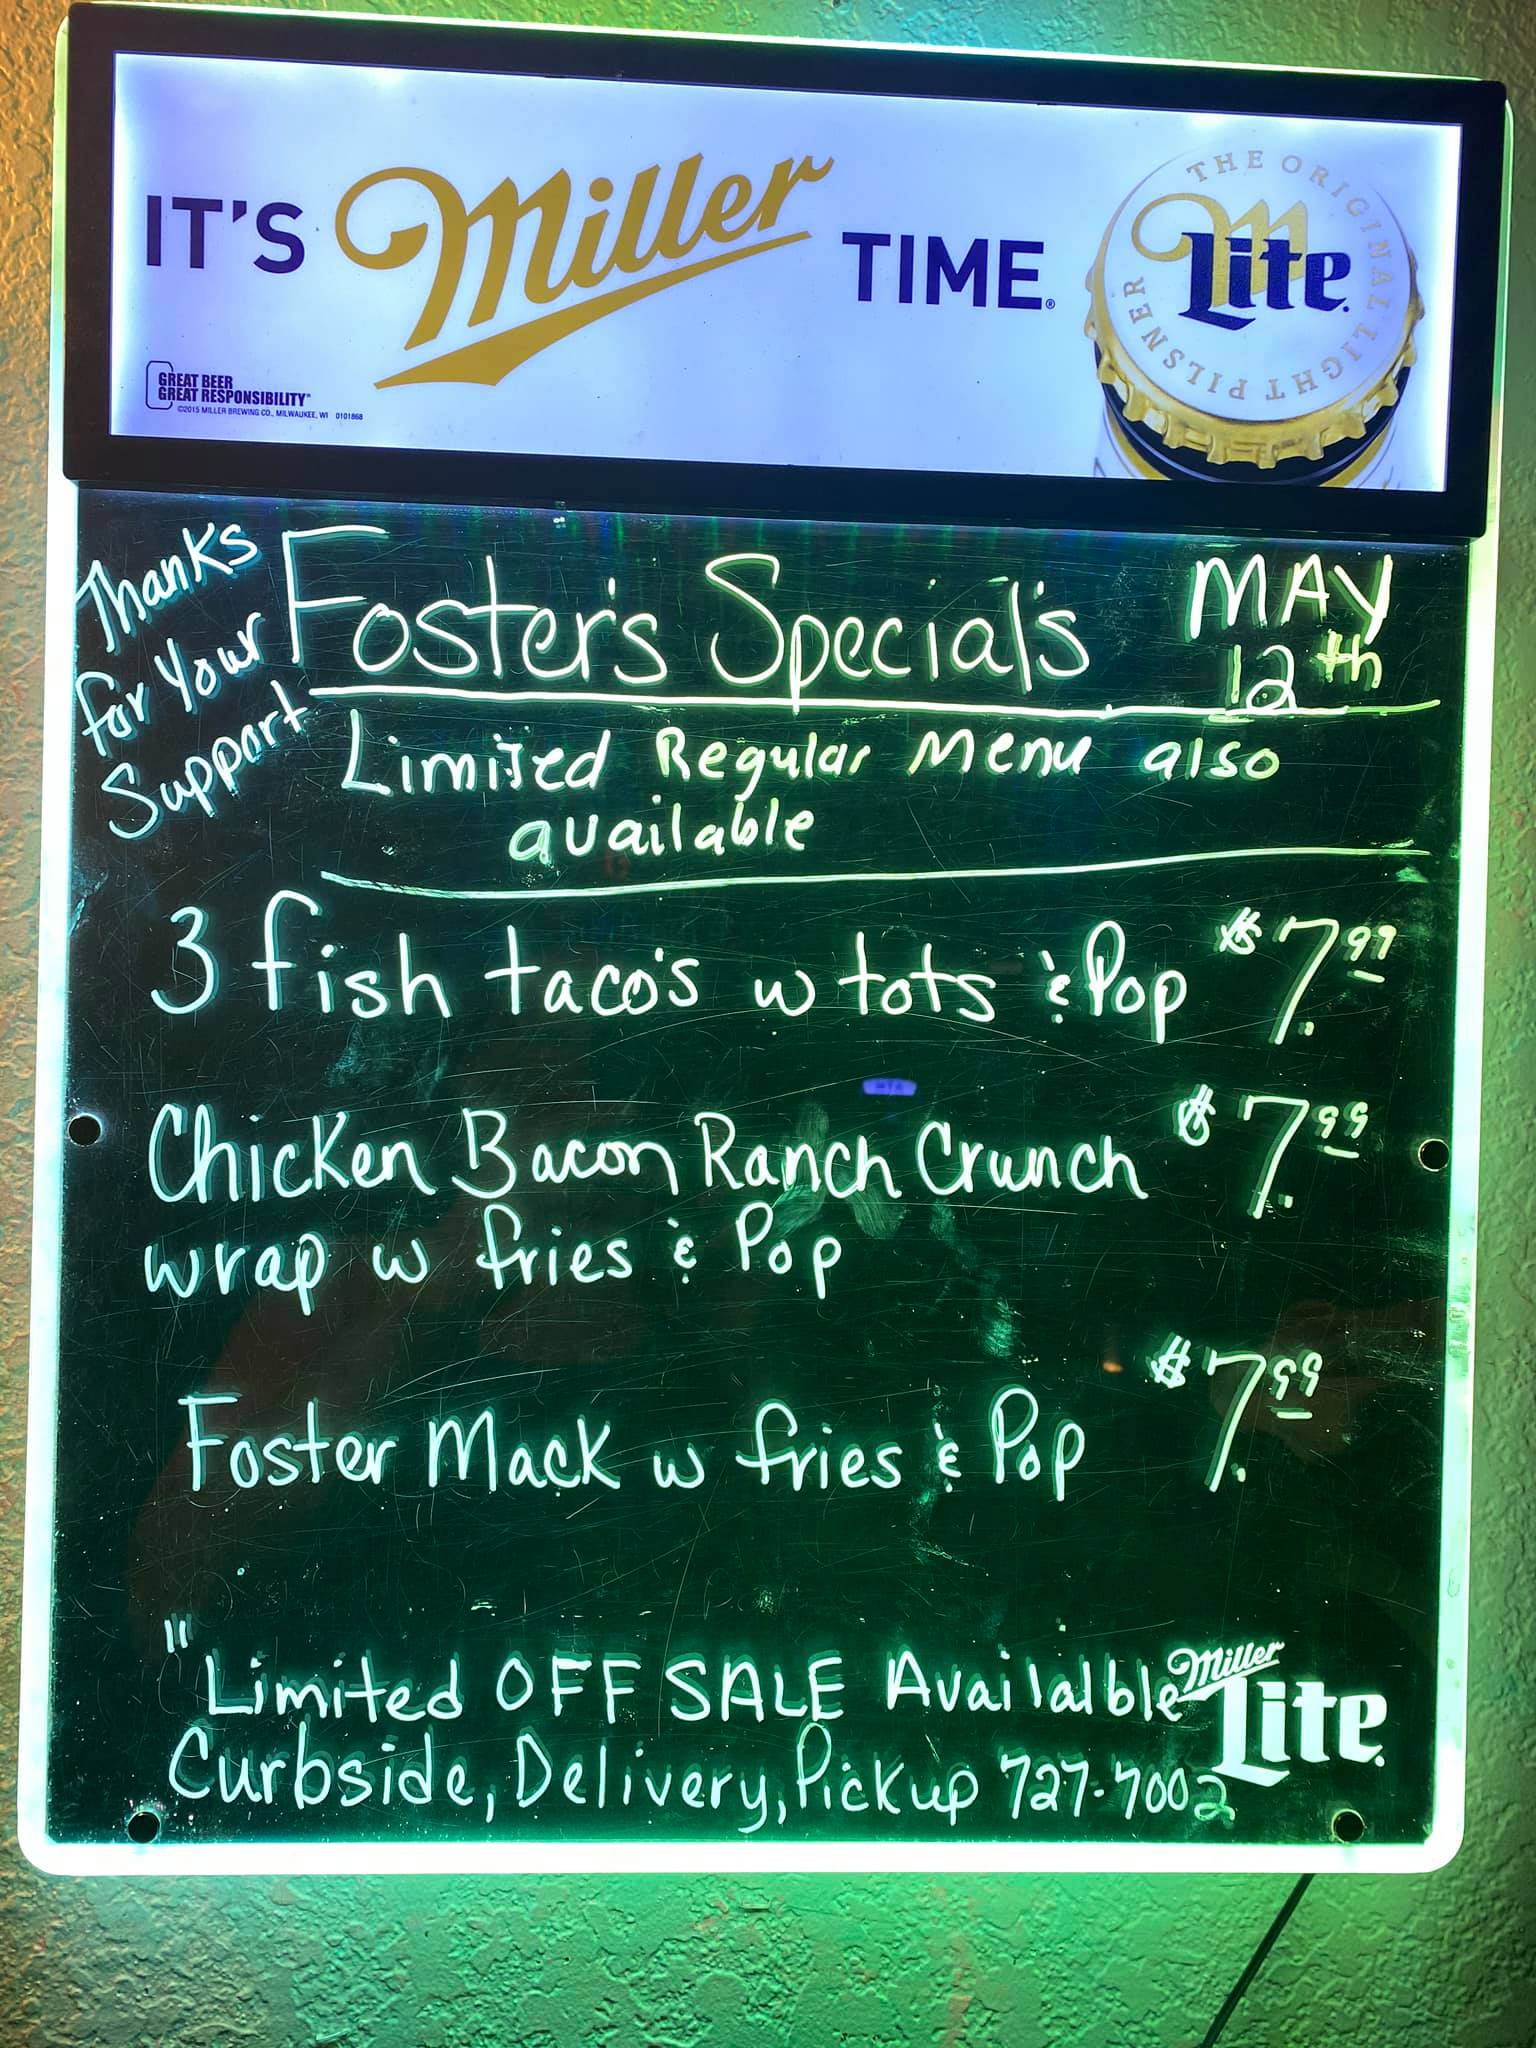 IT'S Miller TIME®
THE ORIGINAL LIGHT PILSNER
Miller Lite
GREAT BEER
GREAT RESPONSIBILITY®
©2015 MILLER BREWING CO., MILWAUKEE, WI 0101868
Thanks
for Your
Support
Foster's Special's
MAY
12th
Limited Regular Menu also
available
3 fish taco's w tots & Pop $7.99
Chicken Bacon Ranch Crunch $7.99
wrap w fries & Pop
Foster Mack w fries & Pop $7.99
"Limited OFF SALE Availalble
Curbside, Delivery, Pickup 727-7002
Miller
Lite